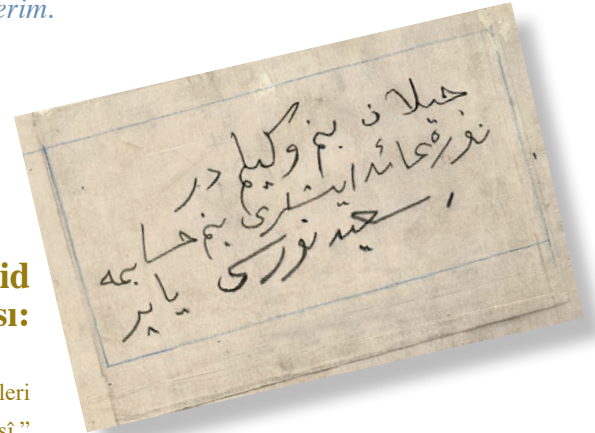 erim.
جيلان بنم وكيلم در
نوره عائد ايشلرى بنم حسابمه
سعيد نورسى ياپر
id
sı:
leri
sî.”